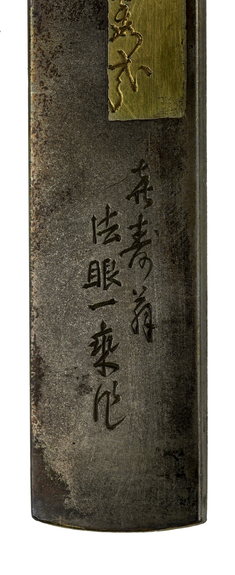 喜寿翁
法眼一乗作